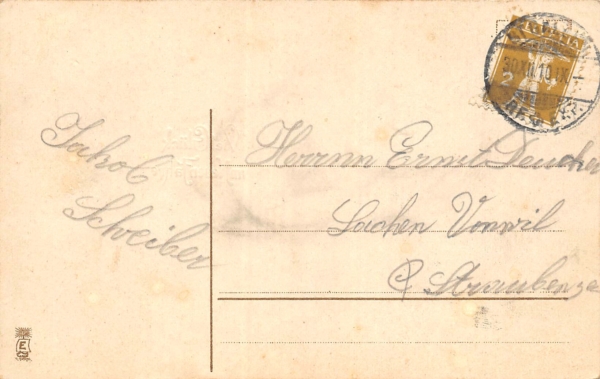 HELVETIA
2
30.XII.10.IX
Jakob
Schreiber
Herrn Ernst Deucher
Lachen Vonwil
Straubenze